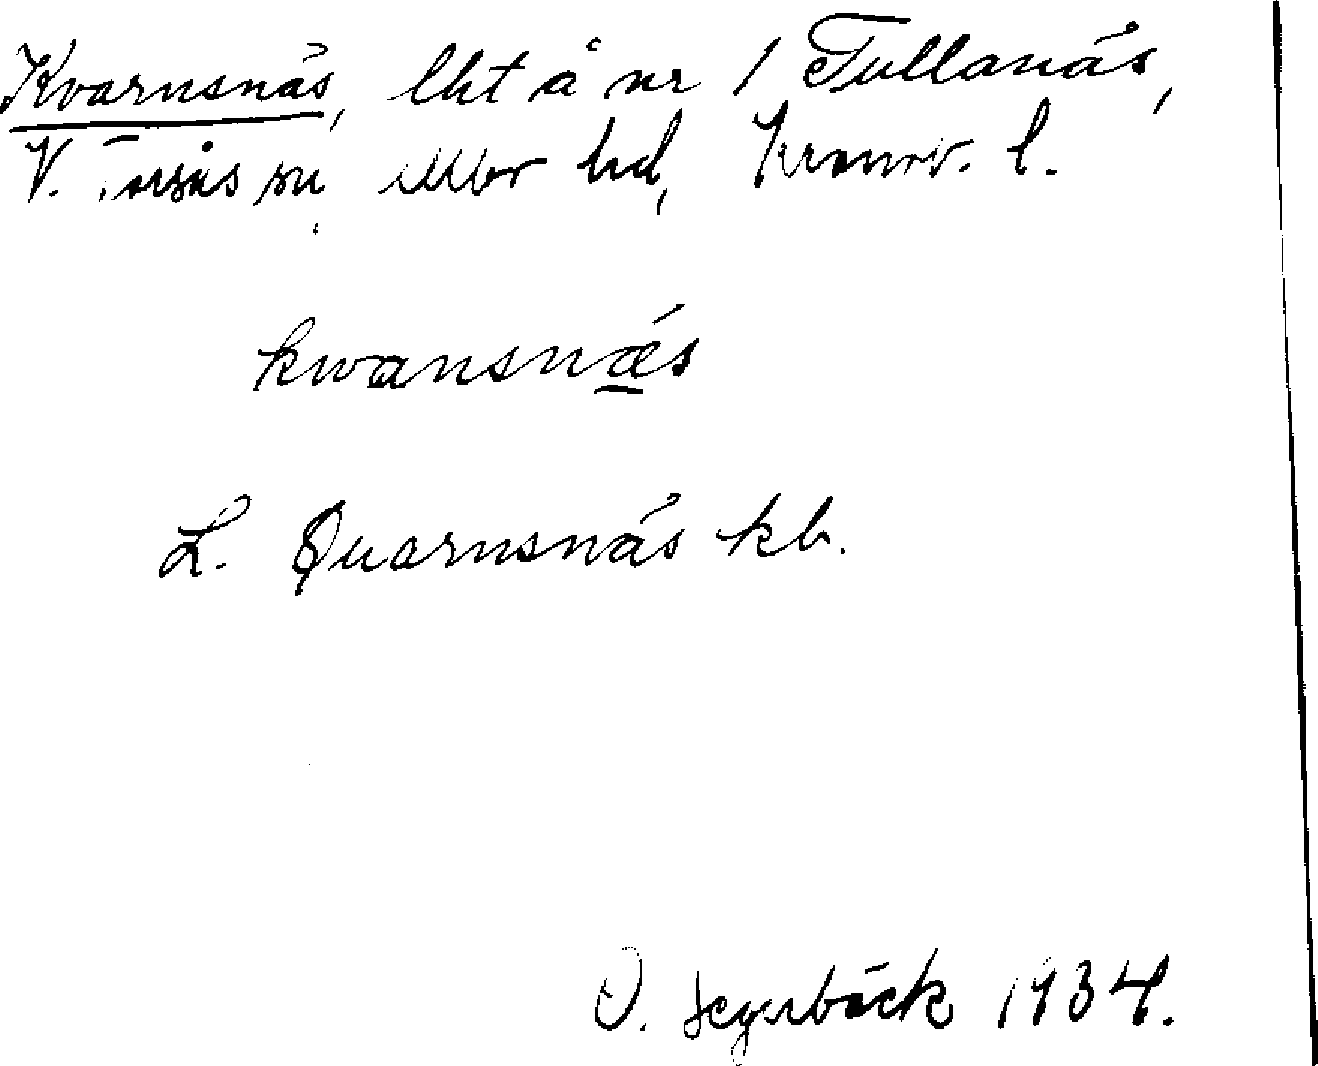 Kvarnsnäs, lht å nr 1 Tullanäs,
V. Torsås sn, Allbo hd, Kronob. l.
kwansnæ´s
L. Quarnsnäs kb.
O. Segerbäck 1934.